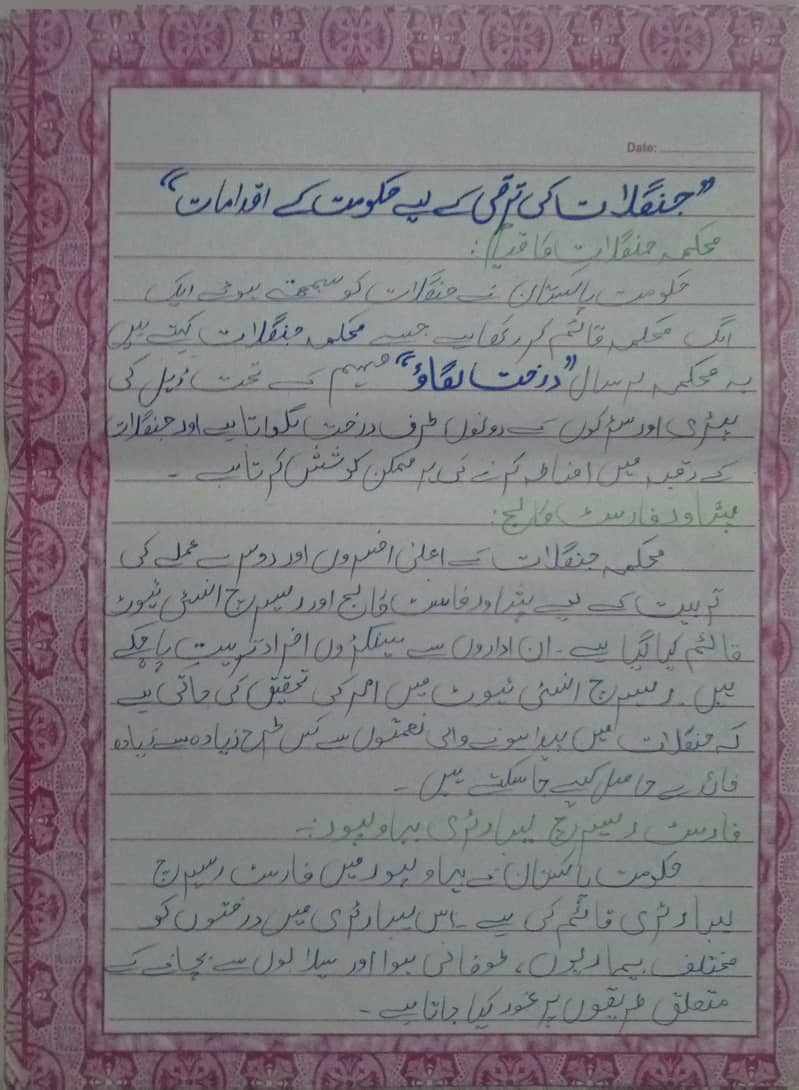 Date:
"جنگلات کی ترقی کے لیے حکومت کے اقدامات"
محکمہ جنگلات کا قیام:
حکومت پاکستان نے جنگلات کو سمجھتے ہوئے ایک
الگ محکمہ قائم کر رکھا ہے جسے محکمہ جنگلات کہتے ہیں
یہ محکمہ ہر سال "درخت لگاؤ" مہیم کے تحت ریل کی
پٹڑی اور سڑکوں کے دونوں طرف درخت لگواتا ہے اور جنگلات
کے رقبہ میں اضافہ کرنے کی ہر ممکن کوشش کرتا ہے ۔
پشاور فارسٹ کالج:
محکمہ جنگلات کے اعلیٰ افسروں اور دوسرے عملے کی
تربیت کے لیے پشاور فاسٹ کالج اور ریسرچ انسٹی ٹیوٹ
قائم کیا گیا ہے ۔ ان اداروں سے سینکڑوں افراد تربیت پا چکے
ہیں ۔ ریسرچ انسٹی ٹیوٹ میں امر کی تحقیق کی جاتی ہے
کہ جنگلات میں پیدا ہونے والی نعمتوں سے کس طرح زیادہ سے زیادہ
فائدے حاصل کیے جا سکتے ہیں ۔
فارسٹ ریسرچ لیبارٹری بہاولپور:۔
حکومت پاکستان نے بہاولپور میں فارسٹ ریسرچ
لیبارٹری قائم کی ہے ۔ اس لیبارٹری میں درختوں کو
مختلف بیماریوں، طوفانی ہوا اور سیلابوں سے بچانے کے
متعلق طریقوں پر غور کیا جاتا ہے ۔